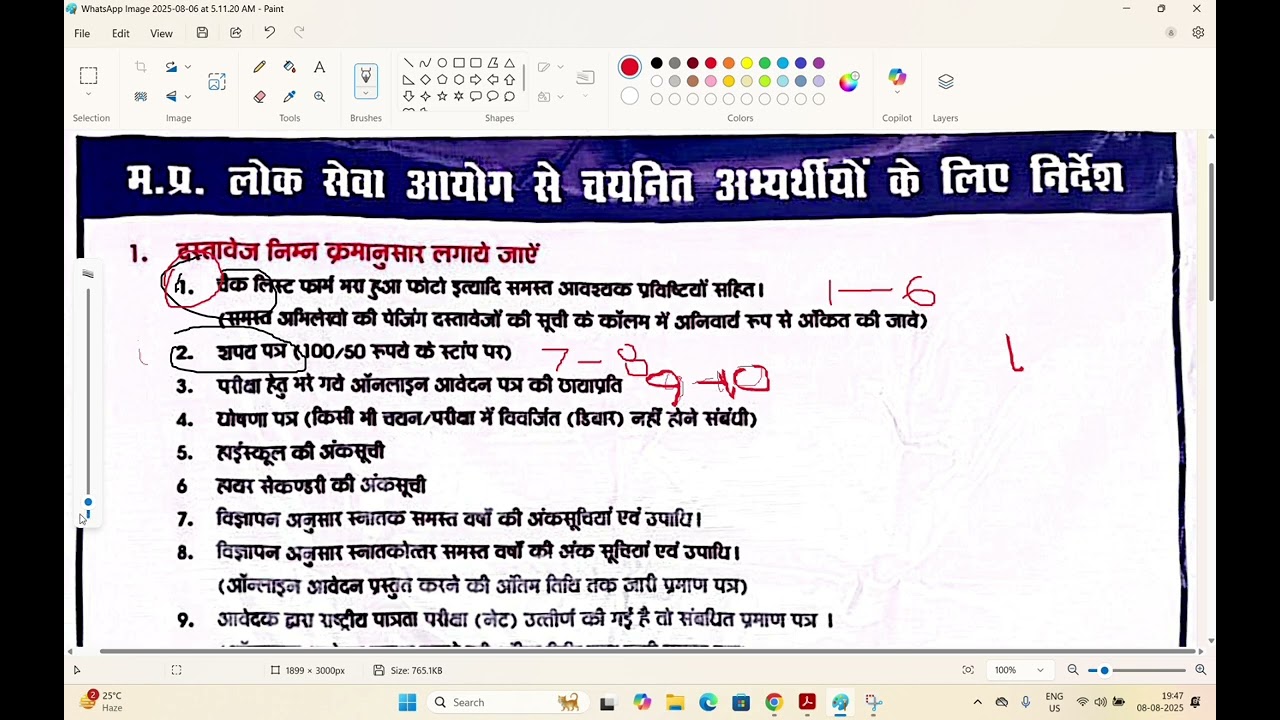 WhatsApp Image 2025-08-06 at 5.11.20 AM - Paint
File Edit View
Selection Image Tools Brushes Shapes Colors Copilot Layers
म.प्र. लोक सेवा आयोग से चयनित अभ्यर्थीयों के लिए निर्देश
1. दस्तावेज निम्न क्रमानुसार लगाये जाऐं
1. चैक लिस्ट फार्म भरा हुआ फोटो इत्यादि समस्त आवश्यक प्रविष्टियों सहित। 1 — 6
(समस्त अभिलेखो की पेजिंग दस्तावेजों की सूची के कॉलम में अनिवार्य रूप से अंकित की जावे)
2. शपथ पत्र (100/50 रूपये के स्टांप पर) 7 - 8
3. परीक्षा हेतु भरे गये ऑनलाइन आवेदन पत्र की छायाप्रति 9 - 10
4. घोषणा पत्र (किसी भी चयन/परीक्षा में विवर्जित (डिबार) नहीं होने संबंधी)
5. हाईस्कूल की अंकसूची
6 हायर सेकण्डरी की अंकसूची
7. विज्ञापन अनुसार स्नातक समस्त वर्षो की अंकसूचियां एवं उपाधि।
8. विज्ञापन अनुसार स्नातकोत्तर समस्त वर्षो की अंक सूचियां एवं उपाधि।
(ऑनलाइन आवेदन प्रस्तुत करने की अंतिम तिथि तक जारी प्रमाण पत्र)
9. आवेदक द्वारा राष्ट्रीय पात्रता परीक्षा (नेट) उत्तीर्ण की गई है तो संबधित प्रमाण पत्र ।
1899 × 3000px Size: 765.1KB 100%
2 25°C Search ENG 19:47
Haze US 08-08-2025